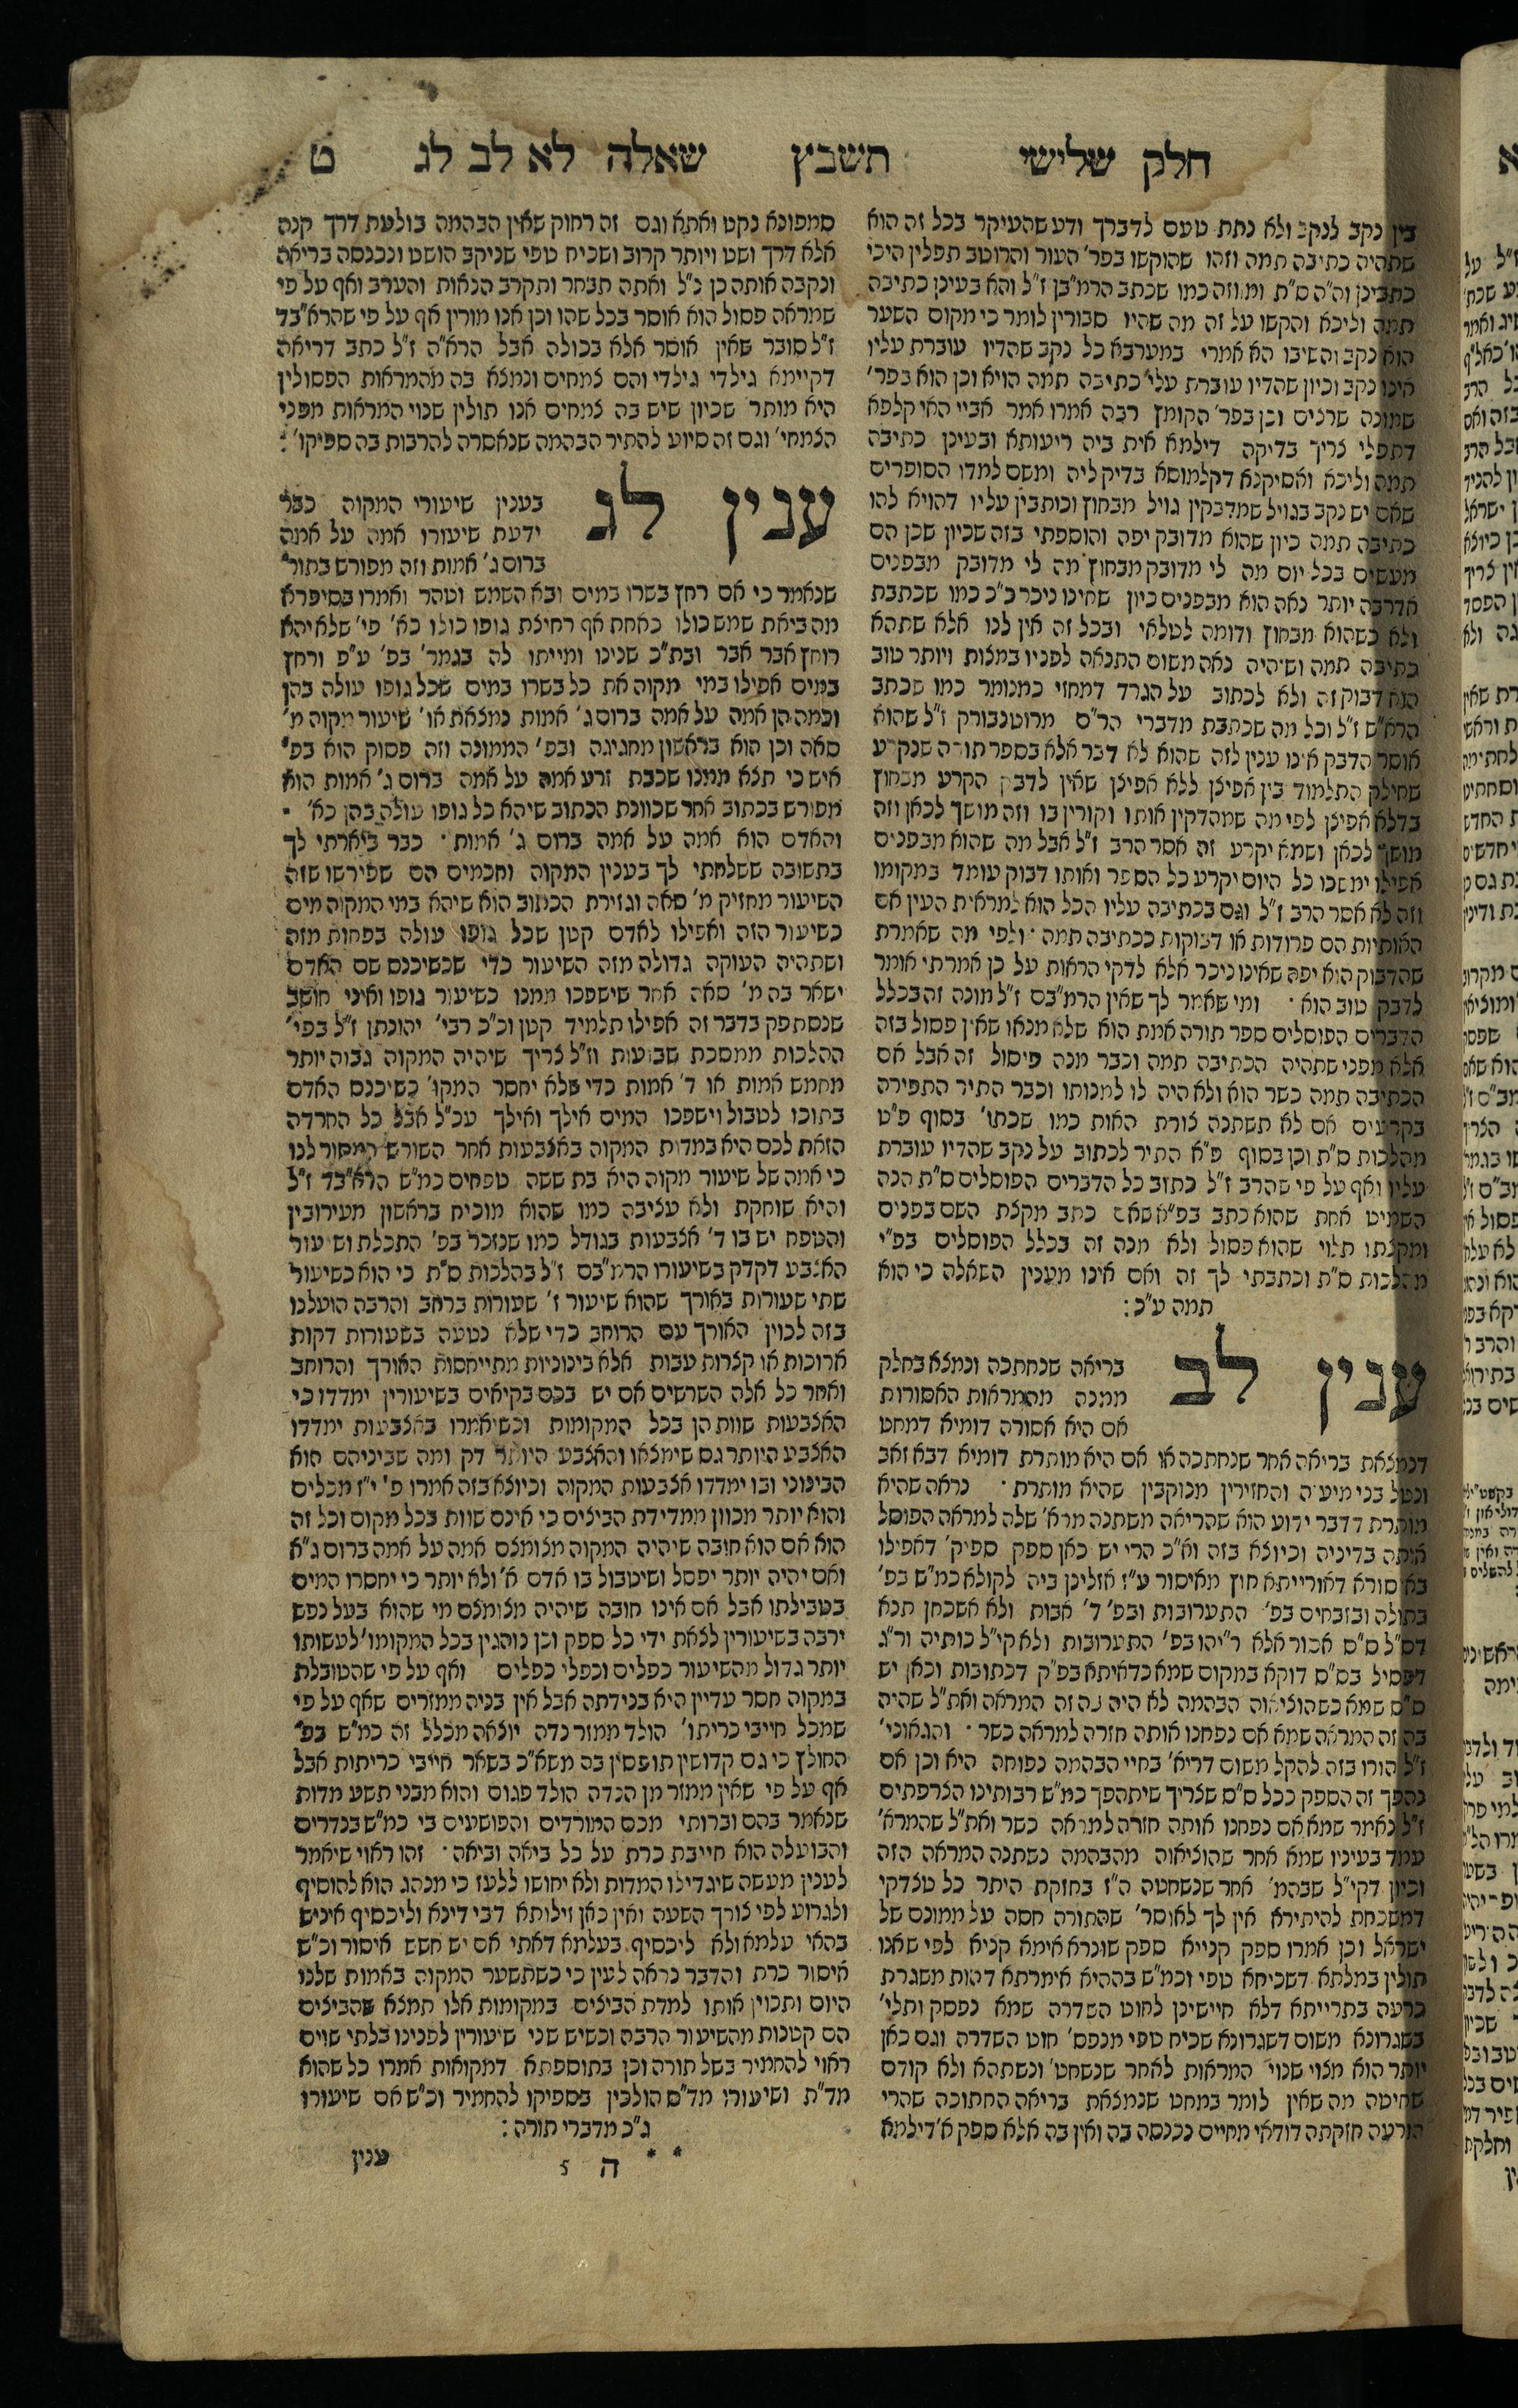 חלק שלישי תשבץ שאלה לא לב לג ט
בין נקב לנקב ולא נתת טעם לדבריך ודע שהעיקר בכל זה הוא
שתהיה כתיבה תמה וזהו שהוקשו בפר' העור והרוטב תפלין היכי
כתבינן וה"ה ס"ת ומזוזה כמו שכתב הרמ"בן ז"ל והא בעינן כתיבה
תמה וליכא והקשו על זה מה שהיו סבורין לומר כי מקום השער
הוא נקב והשיבו הא אמרי במערבא כל נקב שהדיו עוברת עליו
אינו נקב וכיון שהדיו עוברת עלי' כתיבה תמה הויא וכן הוא בפר'
שמונה שרצים וכן בפר' הקומץ רבה אמרו אמר אביי האי קלפא
דתפלי צריך בדיקה דילמא אית ביה ריעותא ובעינן כתיבה
תמה וליכא ואסיקנא דקלמוסא בדיק ליה ומשם למדו הסופרים
שאם יש נקב בגויל שמדבקין גויל מבחוץ וכותבין עליו דהויא להו
כתיבה תמה כיון שהוא מדובק יפה והוספתי בזה שכיון שכן הם
מעשים בכל יום מה לי מדובק מבחוץ מה לי מדובק מבפנים
אדרבה יותר נאה הוא מבפנים כיון שאינו ניכר כ"כ כמו שכתבת
ולא כשהוא מבחוץ ודומה לטלאי ובכל זה אין לנו אלא שתהא
כתיבה תמה ושיהיה נאה משום התנאה לפניו במצות ויותר טוב
הוא דבוק זה ולא לכתוב על הגרד דמחזי כמנומר כמו שכתב
הרא"ש ז"ל וכל מה שכתבת מדברי הר"ם מרוטנבורק ז"ל שהוא
אוסר הדבק אינו ענין לזה שהוא לא דבר אלא בספר תורה שנקרע
שחילק התלמוד בין אפיצן ללא אפיצן שאין לדבק הקרע מבחוץ
בדלא אפיצן לפי מה שמהדקין אותו וקורין בו וזה מושך לכאן וזה
מושך לכאן ושמא יקרע זה אסר הרב ז"ל אבל מה שהוא מבפנים
אפילו ימשכו כל היום יקרע כל הספר ואותו דבוק עומד במקומו
וזה לא אסר הרב ז"ל וגם בכתיבה עליו הכל הוא למראית העין אם
האותיות הם פרודות או דבוקות ככתיבה תמה ולפי מה שאמרת
שהדבוק הוא יפה שאינו ניכר אלא לדקי הראות על כן אמרתי אומר
לדבק טוב הוא ומי שאמר לך שאין הרמ"בם ז"ל מונה זה בכלל
הדברים הפוסלים ספר תורה אמת הוא שלא מנאו שאין פסול בזה
אלא מפני שתהיה הכתיבה תמה וכבר מנה פיסול זה אבל אם
הכתיבה תמה כשר הוא ולא היה לו למנותו וכבר התיר התפירה
בקרעים אם לא תשתנה צורת האות כמו שכתו' בסוף פ"ט
מהלכות ס"ת וכן בסוף פ"א התיר לכתוב על נקב שהדיו עוברת
עליו ואף על פי שהרב ז"ל כתוב כל הדברים הפוסלים ס"ת הנה
השמיט אחת שהוא כתב בפ"א שאם כתב מקצת השם בפנים
ומקצתו תלוי שהוא פסול ולא מנה זה בכלל הפוסלים בפ"י
מהלכות ס"ת וכתבתי לך זה ואם אינו מענין השאלה כי הוא
תמה ע"כ :
ענין לב בריאה שנחתכה ונמצא בחלק
ממנה מהמראות האסורות
אם היא אסורה דומיא דמחט
דנמצאת בריאה אחר שנחתכה או אם היא מותרת דומיא דבא זאב
ונטל בני מיעיה והחזירין מנוקבין שהיא מותרת נראה שהיא
מותרת דדבר ידוע הוא שהריאה משתנה מרא' שלה למראה הפוסל
אותה בדיניה וכיוצא בזה וא"כ הרי יש כאן ספק ספיק' דאפילו
באיסורא דאורייתא חוץ מאיסור ע"ז אזלינן ביה לקולא כמ"ש בפ'
בתולה ובזבחים בפ' התערובות ובפ' ד' אבות ולא אשכחן תנא
דס"ל ס"ס אסור אלא ר"יהו בפ' התערובות ולא קי"ל כותיה ור"ג
דפסיל בס"ס דוקא במקום שמא כדאיתא בפ"ק דכתובות וכאן יש
ס"ס שמא כשהוציאוה הבהמה לא היה בה זה המראה ואת"ל שהיה
בה זה המראה שמא אם נפחנו אותה חזרה למראה כשר והגאוני'
ז"ל הורו בזה להקל משום דריא' בחיי הבהמה נפוחה היא וכן אם
נהפך זה הספק ככל ס"ס שצריך שיתהפך כמ"ש רבותינו הצרפתים
ז"ל נאמר שמא אם נפחנו אותה חזרה למראה כשר ואת"ל שהמרא'
עמד בעיניו שמא אחר שהוציאוה מהבהמה נשתנה המראה הזה
וכיון דקי"ל שבהמ' אחר שנשחטה ה"ז בחזקת היתר כל טצדקי
דמשכחת להיתירא אין לך לאוסר' שהתורה חסה על ממונם של
ישראל וכן אמרו ספק קנייא ספק שונרא אימא קניא לפי שאנו
תולין במלתא דשכיחא טפי וכמ"ש בההיא אימרתא דהות משגרת
כרעה בתרייתא דלא חיישינן לחוט השדרה שמא נפסק ותלי'
בשגרונא משום דשגרונא שכיח טפי מנפס' חוט השדרה וגם כאן
יותר הוא מצוי שנוי המראות לאחר שנשחט' ונשתהא ולא קודם
שחיטה מה שאין לומר במחט שנמצאת בריאה החתוכה שהרי
הורעה חזקתה דודאי מחיים נכנסה בה ואין בה אלא ספק א' דילמא
סמפונא נקט ואתא וגם זה רחוק שאין הבהמה בולעת דרך קנה
אלא דרך ושט ויותר קרוב ושכיח טפי שניקב הושט ונכנסה בריאה
ונקבה אותה כן נ"ל ואתה תבחר ותקרב הנאות והערב ואף על פי
שמראה פסול הוא אוסר בכל שהו וכן אנו מורין אף על פי שהרא"בד
ז"ל סובר שאין אוסר אלא בכולה אבל הרא"ה ז"ל כתב דריאה
דקיימא גילדי גילדי והם צמחים ונמצא בה מהמראות הפסולין
היא מותר שכיון שיש בה צמחים אנו תולין שנוי המראות מפני
הצמחי' וגם זה סיוע להתיר הבהמה שנאסרה להרבות בה ספיקו' :
ענין לג בענין שיעורי המקוה כבר
ידעת שיעורו אמה על אמה
ברום ג' אמות וזה מפורש בתור'
שנאמר כי אם רחץ בשרו במים ובא השמש וטהר ואמרו בסיפרא
מה ביאת שמש כולו כאחת אף רחיצת גופו כולו כא' פי' שלא יהא
רוחץ אבר אבר ובת"כ שנינו ומייתו לה בגמר' בפ' ע"פ ורחץ
במים אפילו במי מקוה את כל בשרו במים שכל גופו עולה בהן
וכמה הן אמה על אמה ברום ג' אמות נמצאת או' שיעור מקוה מ'
סאה וכן הוא בראשון מחגיגה ובפ' הממונה וזה פסוק הוא בפ'
איש כי תצא ממנו שכבת זרע אמה על אמה ברום ג' אמות הוא
מפורש בכתוב אחר שכוונת הכתוב שיהא כל גופו עולה בהן כא'
והאדם הוא אמה על אמה ברום ג' אמות כבר ביארתי לך
בתשובה ששלחתי לך בענין המקוה וחכמים הם שפירשו שזה
השיעור מחזיק מ' סאה וגזירת הכתוב הוא שיהא במי המקוה מים
כשיעור הזה ואפילו לאדם קטן שכל גופו עולה בפחות מזה
ושתהיה העוקה גדולה מזה השיעור כדי שכשיכנס שם האדם
ישאר בה מ' סאה אחר שישפכו ממנו כשיעור גופו ואיני חושב
שנסתפק בדבר זה אפילו תלמיד קטן וכ"כ רבי' יהונתן ז"ל בפי'
ההלכות ממסכת שבועות וז"ל צריך שיהיה המקוה גבוה יותר
מחמש אמות או ד' אמות כדי שלא יחסר המקו' כשיכנס האדם
בתוכו לטבול וישפכו המים אילך ואילך עכ"ל אבל כל החרדה
הזאת לכם היא במדות המקוה באצבעות אחר השורש המסור לנו
כי אמה של שיעור מקוה היא בת ששה טפחים כמ"ש הרא"בד ז"ל
והיא שוחקת ולא עציבה כמו שהוא מוכיח בראשון מעירובין
והטפח יש בו ד' אצבעות בגודל כמו שנזכר בפ' התכלת ושיעור
האצבע דקדק בשיעורו הרמ"בם ז"ל בהלכות ס"ת כי הוא כשיעול
שתי שעורות באורך שהוא שיעור ז' שעורות ברחב והרבה הועלנו
בזה לכוין האורך עם הרוחב כדי שלא נטעה בשעורות דקות
ארוכות או קצרות עבות אלא בינוניות מתייחסות האורך והרוחב
ואחר כל אלה השרשים אם יש בכם בקיאים בשיעורין ימדדו כי
האצבעות שוות הן בכל המקומות וכשיאמרו באצבעות ימדדו
האצבע היותר גם שימצאו והאצבע היותר דק ומה שביניהם הוא
הבינוני ובו ימדדו אצבעות המקוה וכיוצא בזה אמרו פ' י"ז מכלים
והוא יותר מכוון ממדידת הביצים כי אינם שוות בכל מקום וכל זה
הוא אם הוא חובה שיהיה המקוה מצומצם אמה על אמה ברום ג"א
ואם יהיה יותר יפסל ושיטבול בו אדם א' ולא יותר כי יחסרו המים
בטבילתו אבל אם אינו חובה שיהיה מצומצם מי שהוא בעל נפש
ירבה בשיעורין לצאת ידי כל ספק וכן נוהגין בכל המקומו' לעשותו
יותר גדול מהשיעור כפלים וכפלי כפלים ואף על פי שהטובלת
במקוה חסר עדיין היא בנידתה אבל אין בניה ממזרים שאף על פי
שמכל חייבי כריתו' הולד ממזר נדה יוצאה מכלל זה כמ"ש בפ'
החולץ כי גם קדושין תופסין בה משא"כ בשאר חייבי כריתות אבל
אף על פי שאין ממזר מן הנדה הולד פגום והוא מבני תשע מדות
שנאמר בהם וברותי מכם המורדים והפושעים בי כמ"ש בנדרים
והבועלה הוא חייבת כרת על כל ביאה וביאה זהו ראוי שיאמר
לענין מעשה שיגדילו המדות ולא יחושו ללעז כי מנהג הוא להוסיף
ולגרוע לפי צורך השעה ואין כאן זילותא דבי דינא וליכסיף איניש
בהאי עלמא ולא ליכסיף בעלמא דאתי אם יש חשש איסור וכ"ש
איסור כרת והדבר נראה לעין כי כשתשער המקוה באמות שלנו
היום ותכוין אותו למדת הביצים במקומות אלו תמצא שהביצים
הם קטנות מהשיעור הרבה וכשיש שני שיעורין לפנינו בלתי שוים
ראוי להחמיר בשל תורה וכן בתוספתא דמקואות אמרו כל שהוא
מד"ת ושיעורו מד"ס הולכין בספיקו להחמיר וכ"ש אם שיעורו
ג"כ מדברי תורה :
ה 5 ענין